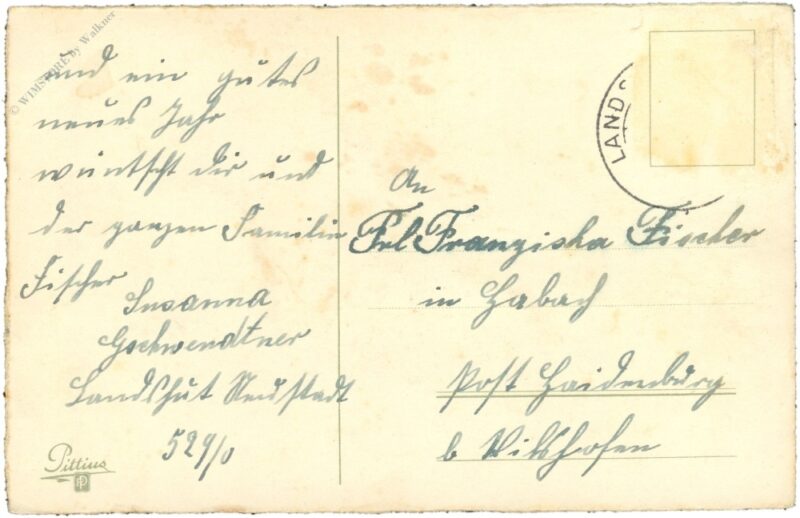 und ein gutes
neues Jahr
wünscht dir und
der ganzen Familie
Fischer
Susanna
Gschwendtner
Landshut Neustadt
529/0
Pittius
© WIMSTORE by Walkner
LANDS
An
Frl Franziska Fischer
in Habach
Post Haidenburg
b Vilshofen